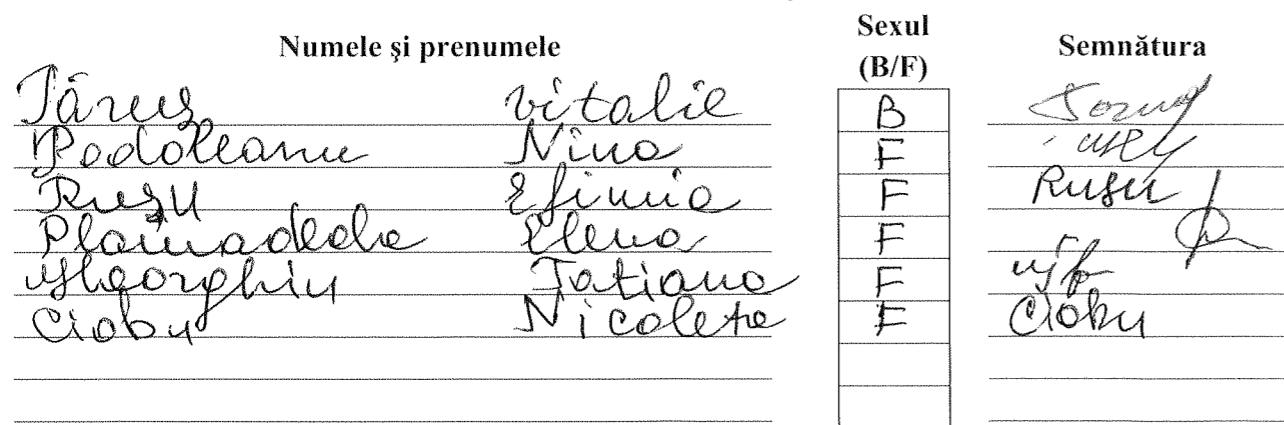 Numele şi prenumele Sexul (B/F) Semnătura
Țăruș Vitalie B
Podoleanu Nina F
Rusu Efimia F Rusu
Plamadeala Elena F
Gheorghiu Tatiana F
Ciobu Nicoleta F Ciobu